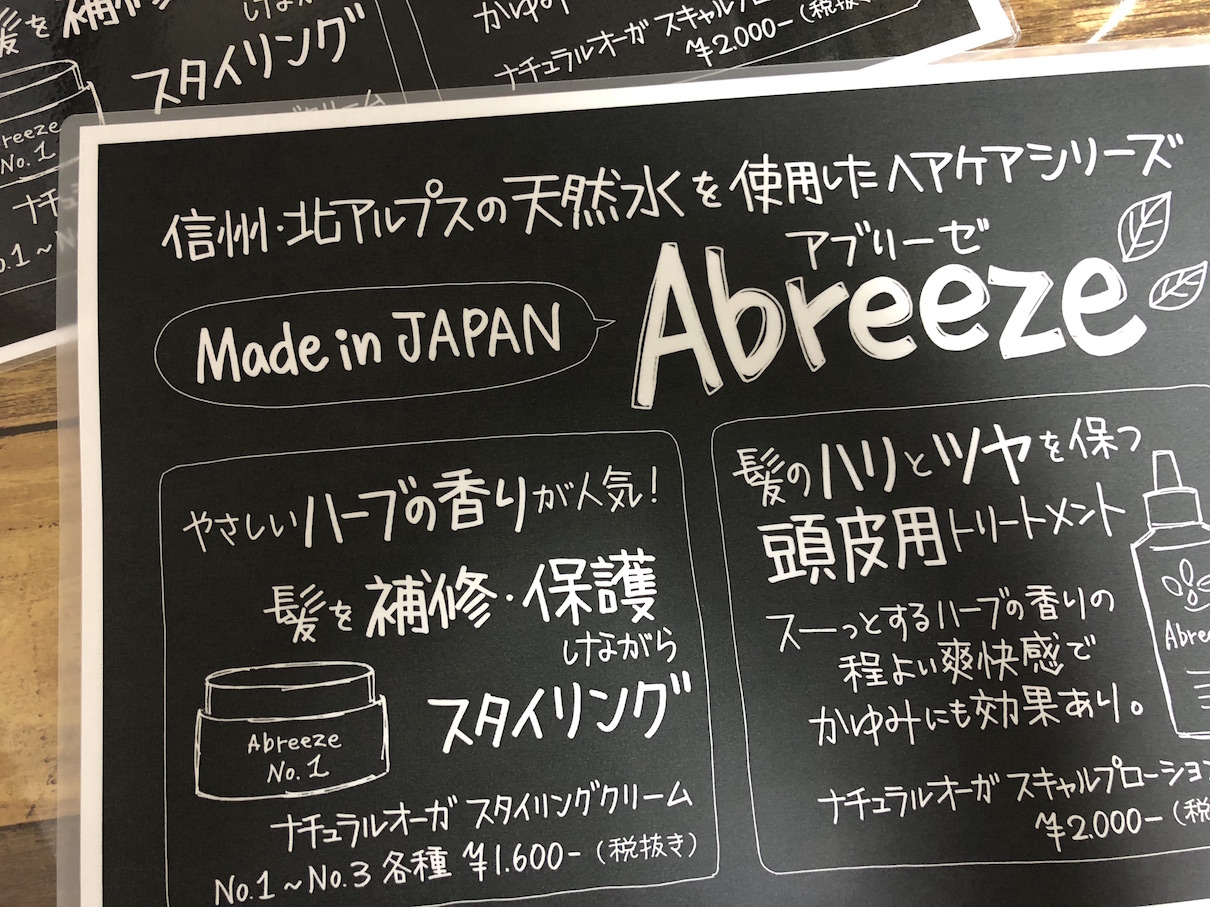 髪を補修
しながら
スタイリング
Abreeze
No.1
かゆみ
ナチュラルオーガ スキャルプロー
¥2.000-(税抜き
信州・北アルプスの天然水を使用したヘアケアシリーズ
アブリーゼ
Abreeze
Made in JAPAN
やさしいハーブの香りが人気!
髪を補修・保護
しながら
スタイリング
Abreeze
No.1
ナチュラルオーガ スタイリングクリーム
No.1~No.3 各種 ¥1.600-(税抜き)
髪のハリとツヤを保つ
頭皮用トリートメント
スーっとするハーブの香りの
程よい爽快感で
かゆみにも効果あり。
Abree
ナチュラルオーガ スキャルプローション
¥2.000-(税